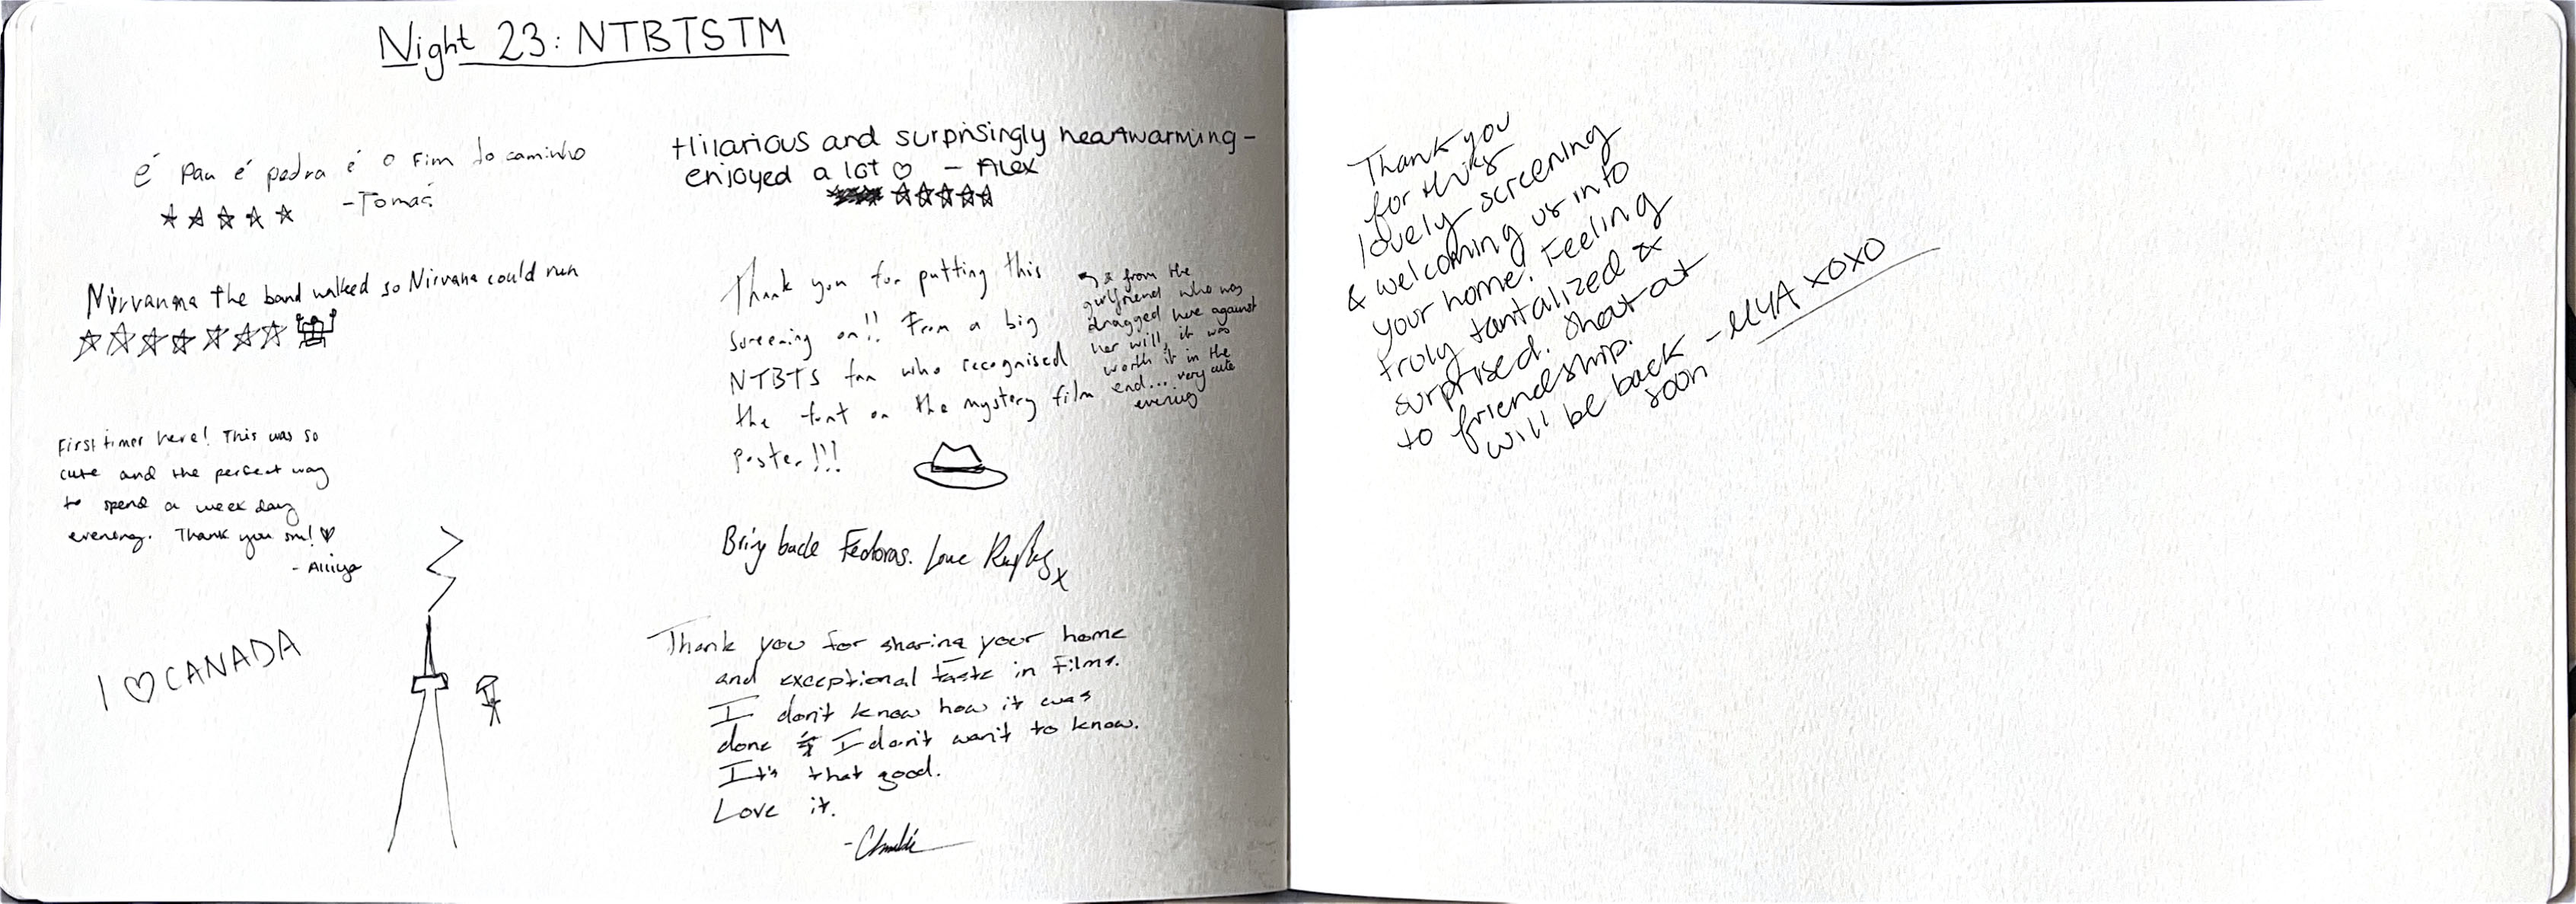 Night 23: NTBTSTM
é pau é pedra é o fim do caminho
-Tomás
Nirvanna the band walked so Nirvana could run
First timer here! This was so
cute and the perfect way
to spend a week day
evening. Thank you sm! ♡
- Aliiya
I ♡ CANADA
Hilarious and surprisingly heartwarming -
enjoyed a lot ♡ - Alex
Thank you for putting this
screening on!! From a big
NTBTS fan who recognised
the font on the mystery film
poster!!!
& from the
girlfriend who was
dragged here against
her will, it was
worth it in the
end... very cute
evening
Bring back Fedoras. Love x
Thank you for sharing your home
and exceptional taste in films.
I don't know how it was
done & I don't want to know.
It's that good.
Love it.
-Charlie
Thank you
for this
lovely screening
& welcoming us into
your home! Feeling
truly tantalized &
surprised. Shout out
to friendship.
will be back - MYA XOXO
soon